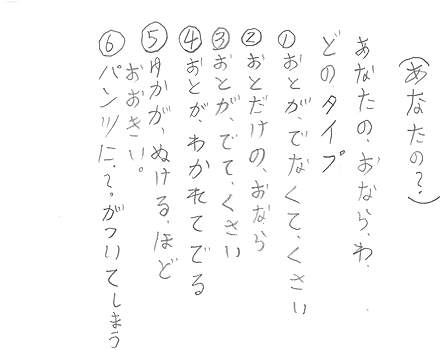 (あなたの?)
あなたの、おなら、わ、
どの、タイプ
①おとが、でなくて、くさい
②おとだけの、おなら
③おとが、でて、くさい
④おとが、わかれてでる
⑤ゆかが、ぬける、ほど
おおきい。
⑥パンツに、?。がついてしまう